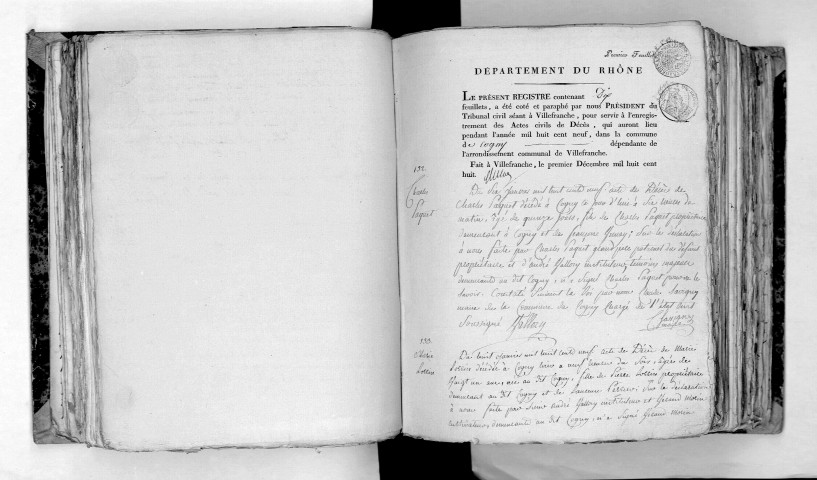 Premier Feuillet
DÉPARTEMENT DU RHÔNE
LE PRÉSENT REGISTRE contenant Dix
feuillets, a été coté et paraphé par nous PRÉSIDENT du
Tribunal civil séant à Villefranche, pour servir à l'enregis-
trement des Actes civils de Décès, qui auront lieu
pendant l'année mil huit cent neuf, dans la commune
de Cogny dépendante de
l'arrondissement communal de Villefranche.
Fait à Villefranche, le premier Décembre mil huit cent
huit.
132.
Charles
Paquet
Du Six Janvier mil huit cent neuf acte de Décès de
Charles Paquet décédé à Cogny ce jour d'huy à Six heures du
matin, agé de quinze jours, fils de Charles Paquet propriétaire
demeurant à Cogny et de françoise ; Sur la déclaration
à nous faite par Charles Paquet grand père paternel du défunt
propriétaire et d'andré Vallosy instituteur, témoins majeurs
demeurants au dit Cogny, n'a Signé Charles Paquet pour ne le
Savoir. Constaté Suivant la loi par nous Charles Savigny
maire de la Commune de Cogny Chargé de l'Etat Civil
Soussigné Vallosy Savigny
maire
133.
Marie
Du huit Janvier mil huit cent neuf acte de Décès de Marie
décédée à Cogny hier a neuf heures du Soir, agée de
Vingt un ans, née au dit Cogny, fille de Pierre propriétaire
demeurant au dit Cogny et de Laurence ; Sur la déclaration
à nous faite par Sieur André Vallosy instituteur et Gérand Morin
cultivateur, demeurants au dit Cogny, n'a Signé Gérand Morin